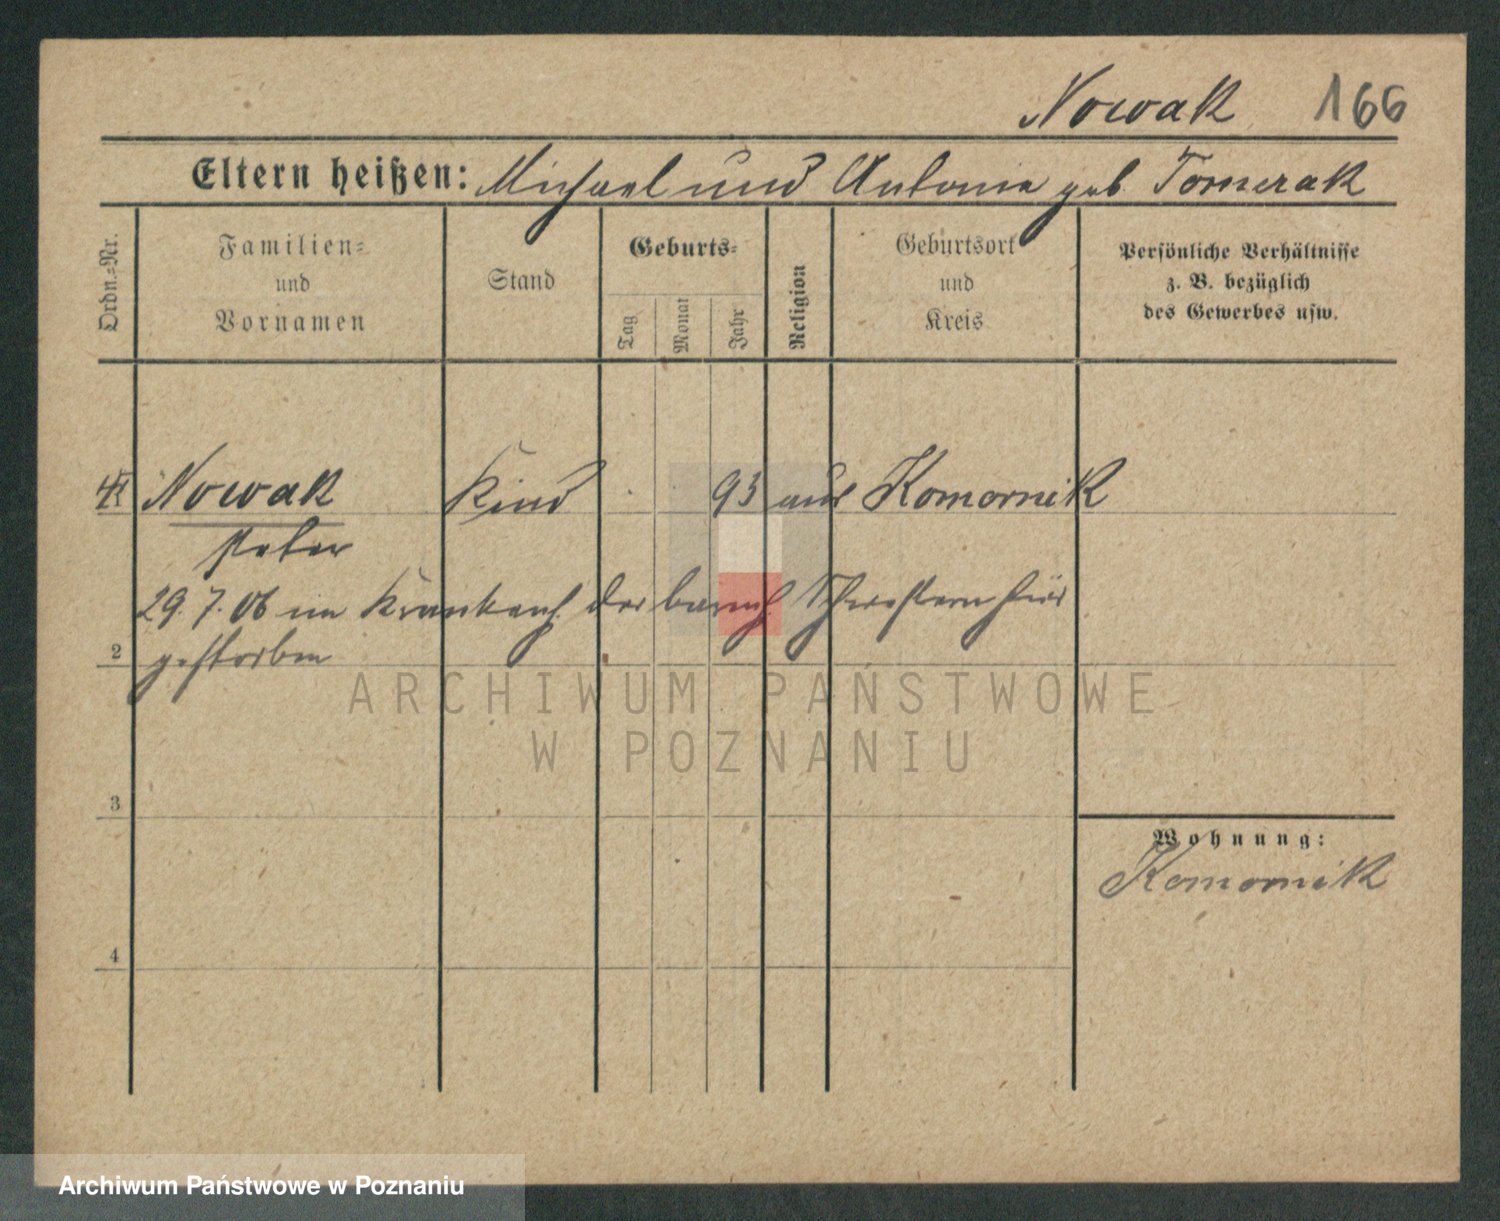 Nowak 166
Eltern heißen: Michael und Antonie geb Tomerak
Ordn.-Nr.
Familien-
und
Vornamen
Stand
Geburts-
Tag
Monat
Jahr
Religion
Geburtsort
und
Kreis
Persönliche Verhältnisse
z. B. bezüglich
des Gewerbes usw.
Nowak Kind 93 aus Komornik
Peter
29. 7. 06 im Krankenh. der barmh. Schwestern hier
2 gestorben
ARCHIWUM PAŃSTWOWE
W POZNANIU
3
Wohnung:
Komornik
4
Archiwum Państwowe w Poznaniu